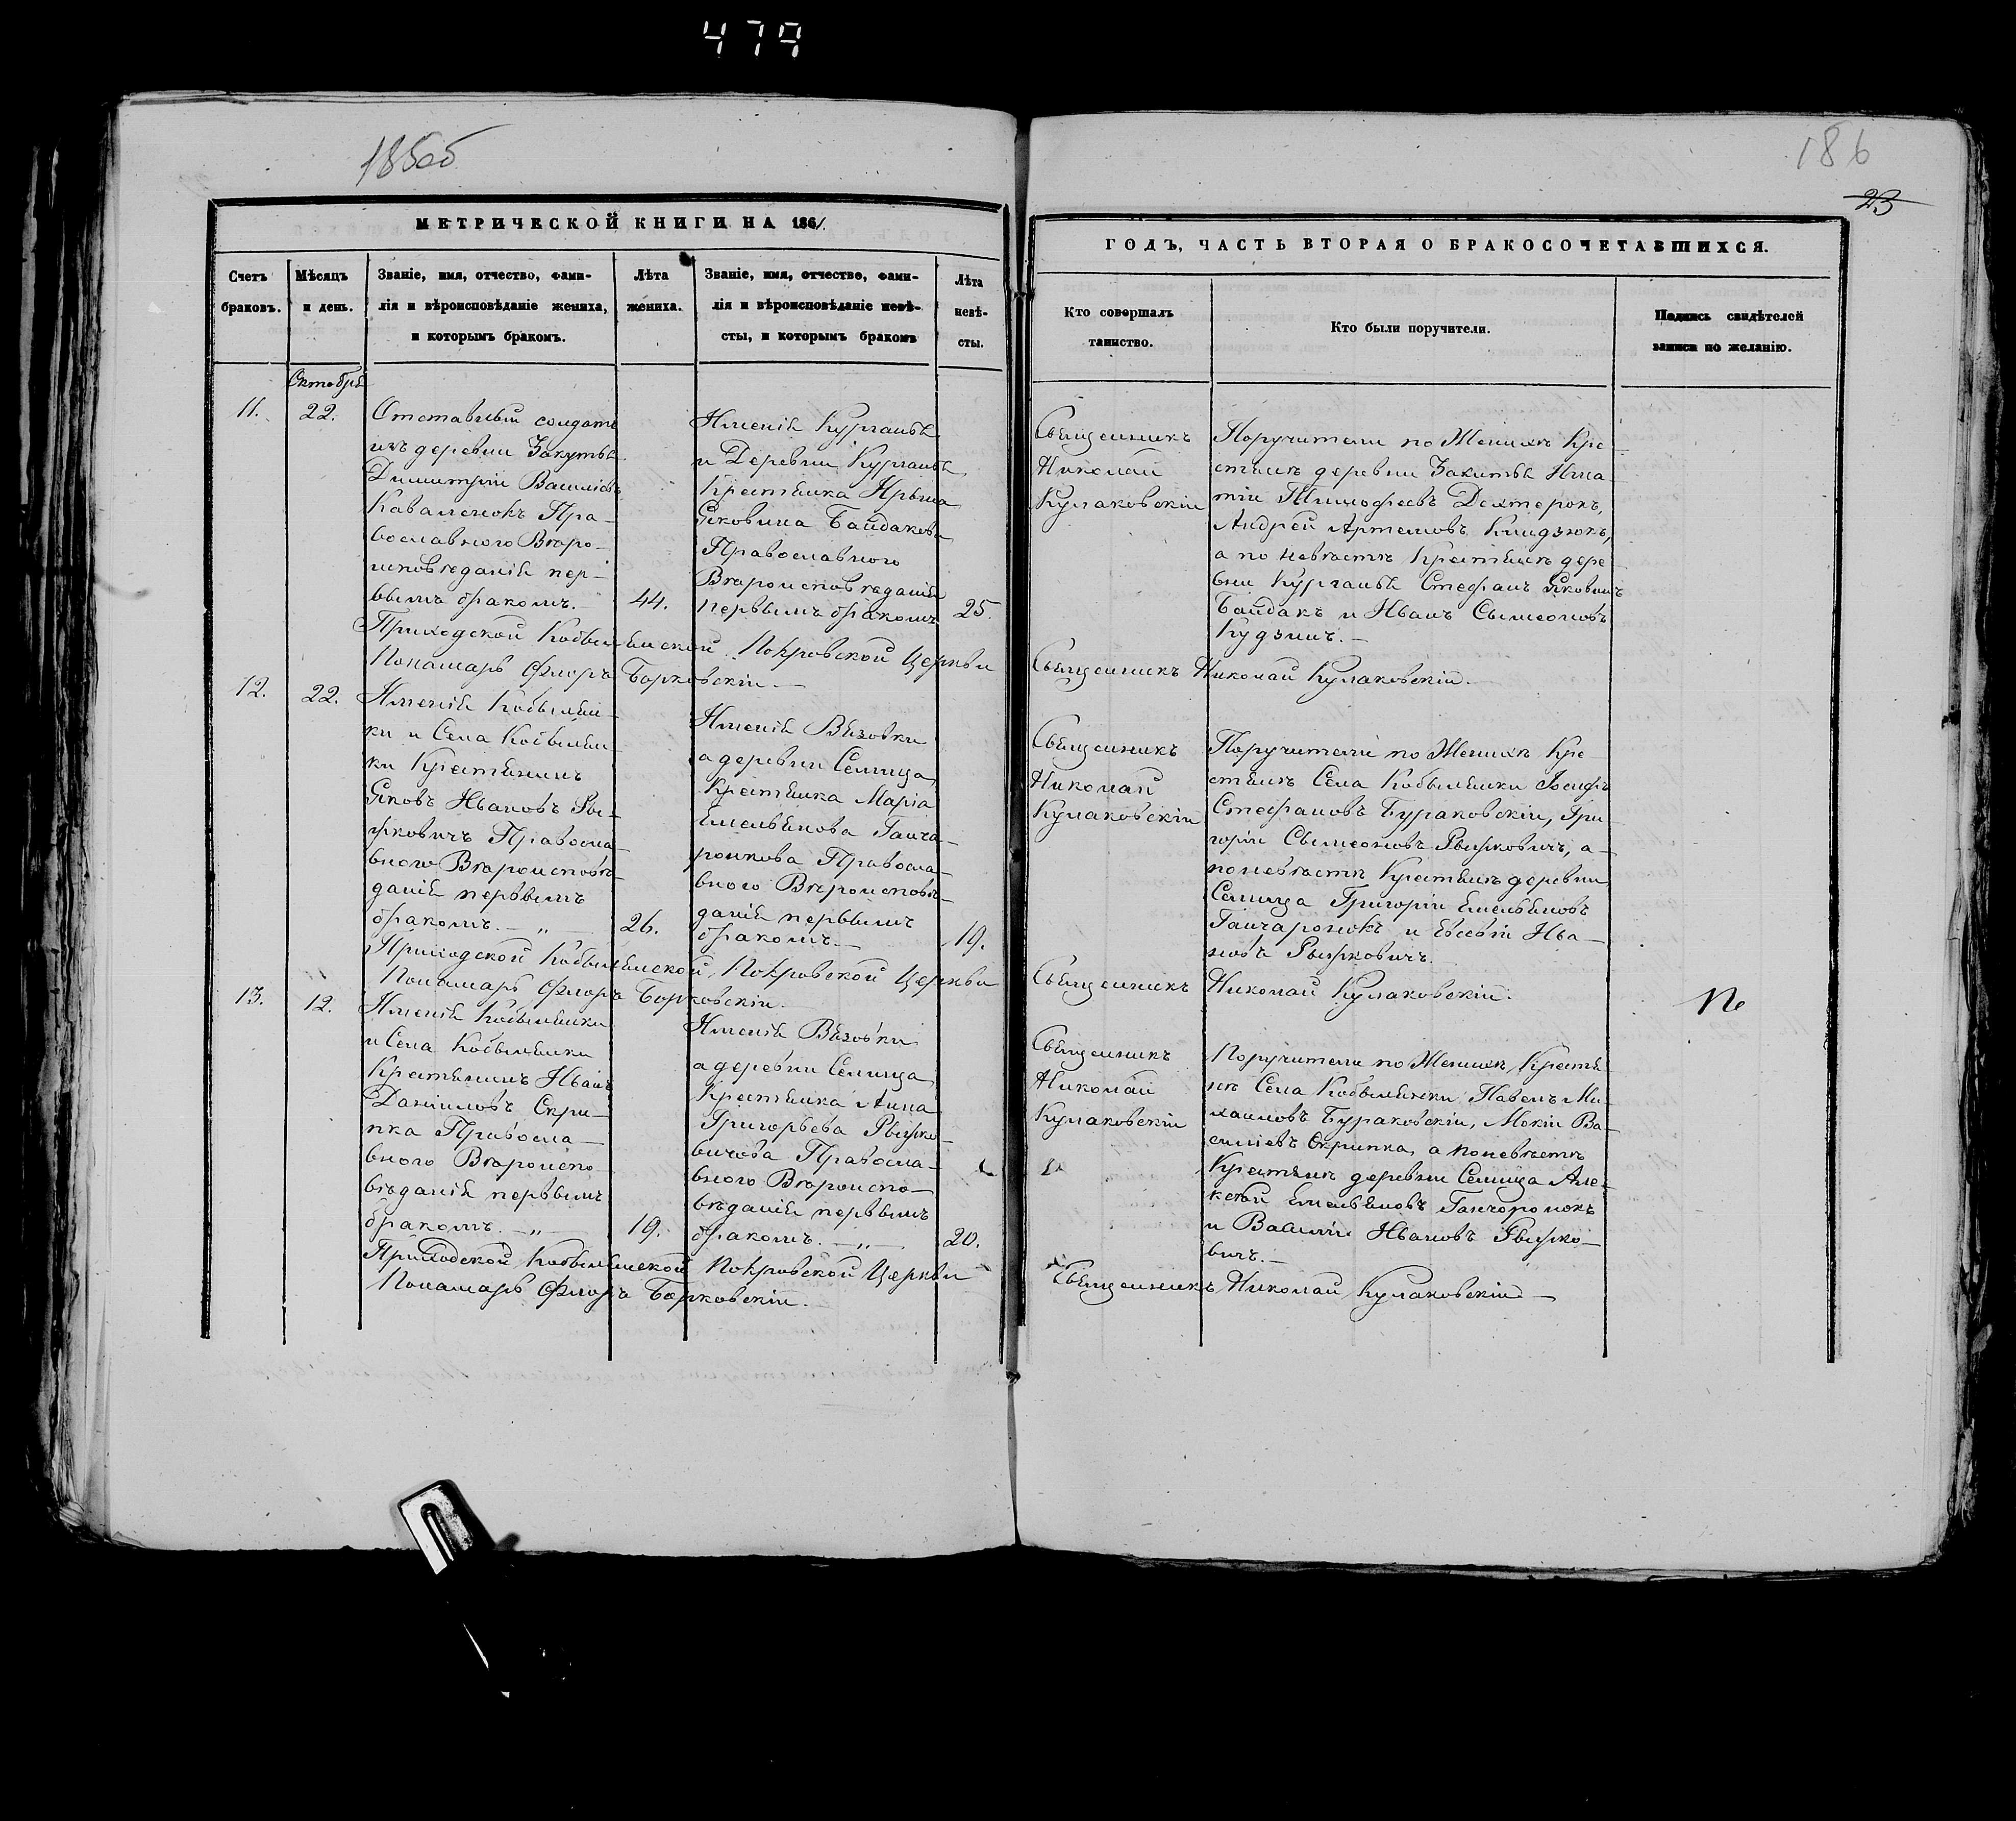 479
185об
186
23
МЕТРИЧЕСКОЙ КНИГИ НА 1861
ГОДЪ, ЧАСТЬ ВТОРАЯ О БРАКОСОЧЕТАВШИХСЯ.
Счетъ
браковъ.
Мѣсяцъ
и день.
Званіе, имя, отчество, фами-
лія и вѣроисповѣданіе жениха,
и которымъ бракомъ.
Лѣта
жениха.
Званіе, имя, отчество, фами-
лія и вѣроисповѣданіе невѣ-
сты, и которымъ бракомъ
Лѣта
невѣ-
сты.
Кто совершалъ
таинство.
Кто были поручители.
Подпись свидѣтелей
записи по желанію.
Октобрѣ
11.
22.
Отставный солдатъ
изъ деревни Закутья
Димитрій Василіевъ
Каваленокъ Пра-
вославного Вѣро-
исповѣданія пер-
вымъ бракомъ.
44.
Имѣнія Курганья
и Деревни Курганья
Крестьянка Ирына
Яковлева Байдакова
Православного
Вѣроисповѣданія
первымъ бракомъ
25.
Священникъ
Николай
Кулаковскій
Поручители по Женихѣ Кре
стьянъ деревни Закитья Игна
тій Тимофеевъ Дехтерокъ,
Андрей Артемовъ
а по невѣстѣ Крестьянъ дере
вни Курганья Стефанъ Яковлевъ
Байдакъ и Иванъ Сымеоновъ
Кудзинъ.
Приходской Кобыльянской Покровской Церкви
Понамарь Флоръ Борковскій
Священникъ Николай Кулаковскій.
12.
22.
Имѣнія Кобылян-
ки и Села Кобылян-
ки Крестьянинъ
Яковъ Ивановъ Ры-
жковичъ Правосла-
вного Вѣроисповѣ-
данія первымъ
бракомъ. — „ —
26.
Имѣнія Вязовки
а деревни Селища
Крестьянка Марія
Емельянова Ганча-
ронкова Правосла-
вного Вѣроисповѣ-
данія первымъ
бракомъ. —
19.
Священникъ
Николай
Кулаковскій
Поручители по Женихѣ Кре
стьянъ Села Кобылянки Іосифъ
Стефановъ Бураковскій, Гри-
горій Сымеоновъ Рыжковичъ, а-
по невѣстѣ Крестьянъ деревни
Селища Григорій Емельяновъ
Ганчаронокъ и Евсѣй Ива-
новъ Рыжковичъ.
Приходской Кобылянской Покровской Церкви
Понамарь Флоръ Борковскій.
Священникъ Николай Кулаковскій.
13.
12.
Имѣнія Кобылянки
и Села Кобылянки
Крестьянинъ Иванъ
Даниловъ Скри-
пка Правосла-
вного Вѣроиспо
вѣданія первымъ
бракомъ. — „ —
19.
Имѣнія Вязовки
а деревни Селища
Крестьянка Анна
Григорьева Рыжко-
вичова Правосла-
вного Вѣроиспо-
вѣданія первымъ
бракомъ. — „ —
20.
Священникъ
Николай
Кулаковскій
Поручители по Женихѣ, Крестья
нѣ Села Кобылянки Павелъ Ми-
хаиловъ Бураковскій, Мокій Ва-
силіевъ Скрипка, а по невѣстѣ
Крестьянъ деревни Селища Але-
ксѣй Емельяновъ Ганчоронокъ
и Василій Ивановъ Рыжко-
вичъ. —
Приходской Кобылянской Покровской Церкви
Понамарь Флоръ Борковскій.
Священникъ Николай Кулаковскій —